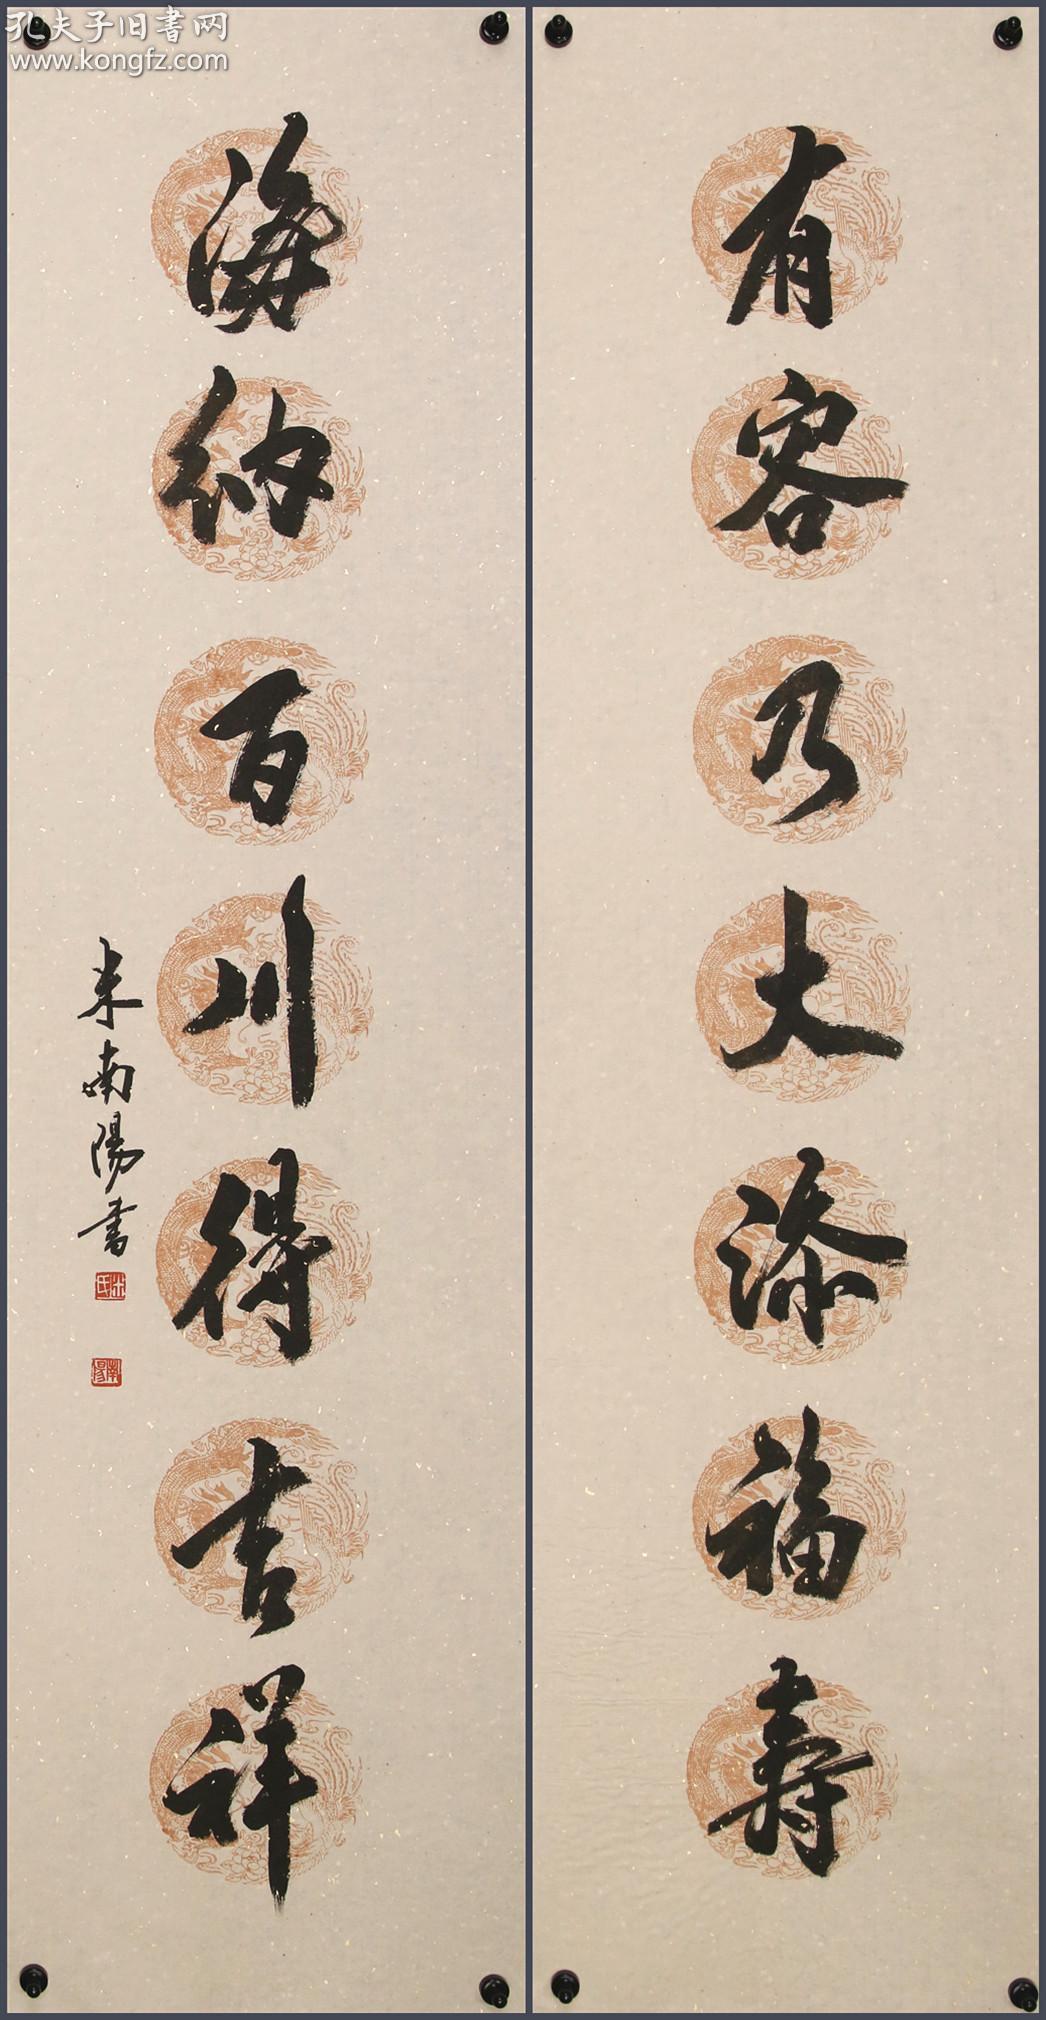 孔夫子旧书网
www.kongfz.com
有容乃大添福寿
海纳百川得吉祥
米南陽书
米氏
南陽